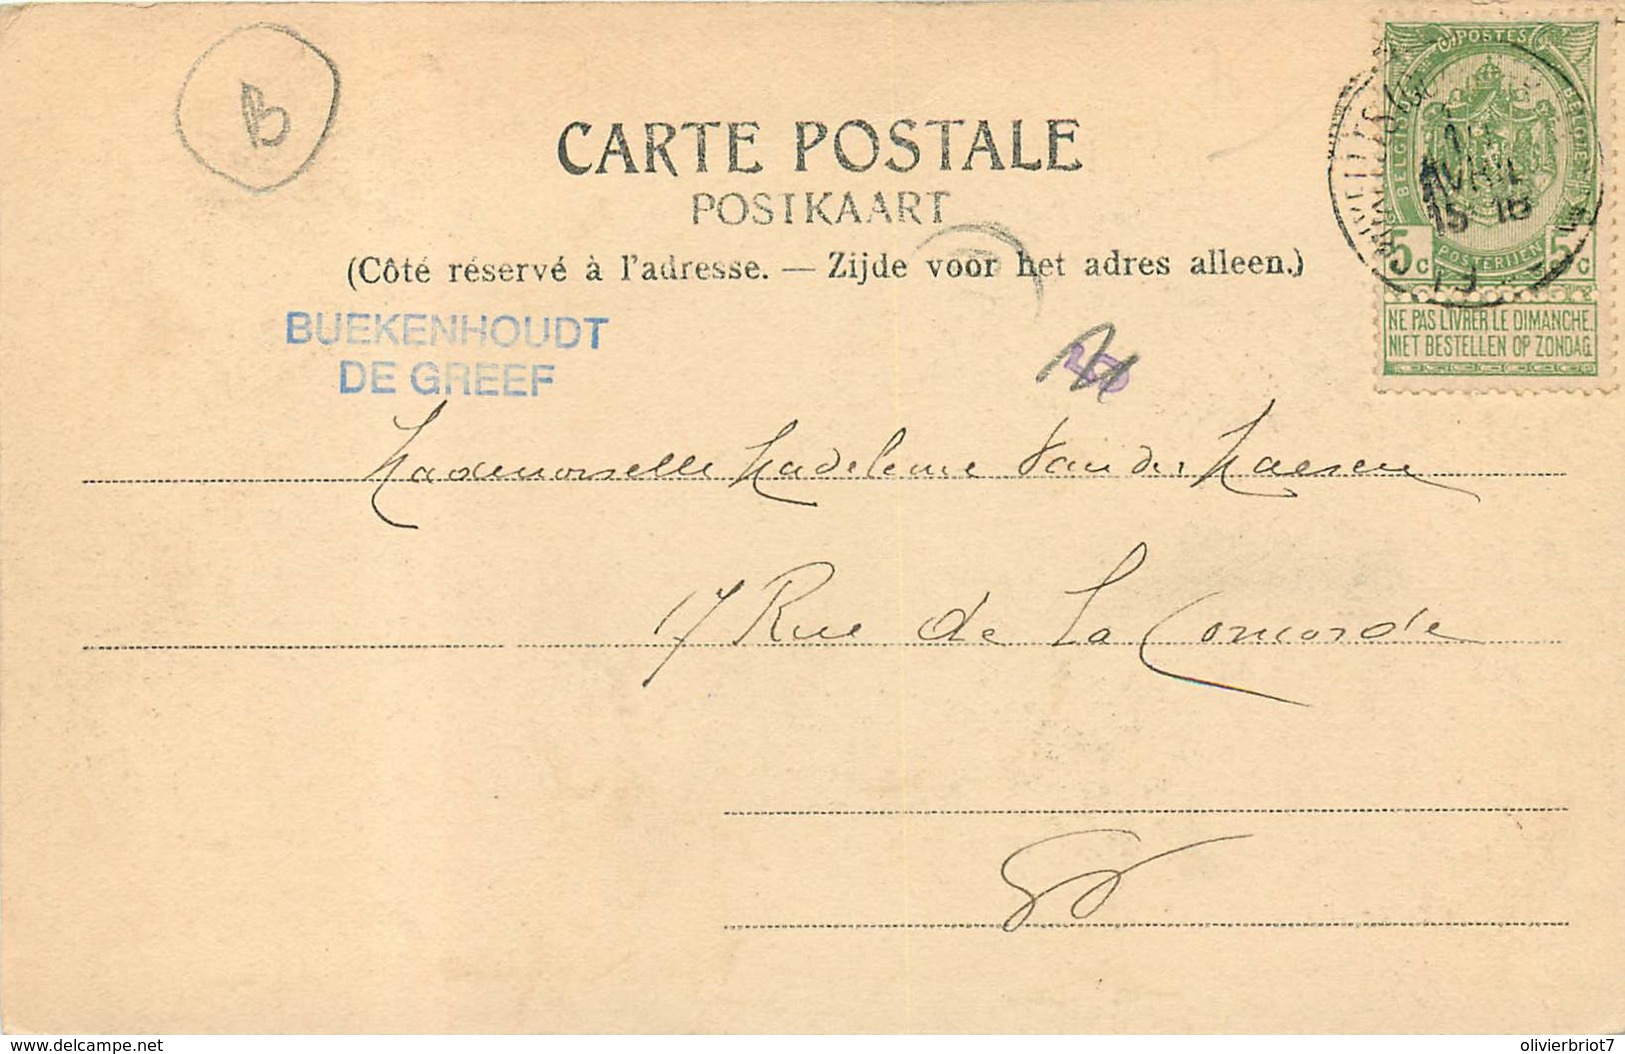 B
CARTE POSTALE
POSTKAART
(Côté réservé à l'adresse. — Zijde voor het adres alleen.)
BUEKENHOUDT
DE GREEF
POSTES
5c POSTERIJEN 5c
AVRIL
NE PAS LIVRER LE DIMANCHE.
NIET BESTELLEN OP ZONDAG.
Mademoiselle Madeleine Van der Maesen
7 Rue de La Concorde
www.delcampe.net
olivierbriot7